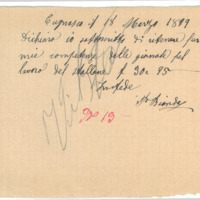 Caprasca il 18 Marzo 1899
Dichiaro io sottoscritto di ritenere per
mie competenze delle giornate pel
lavoro del Mallone £. 30= 95
In fede
Biondi
Nº 13